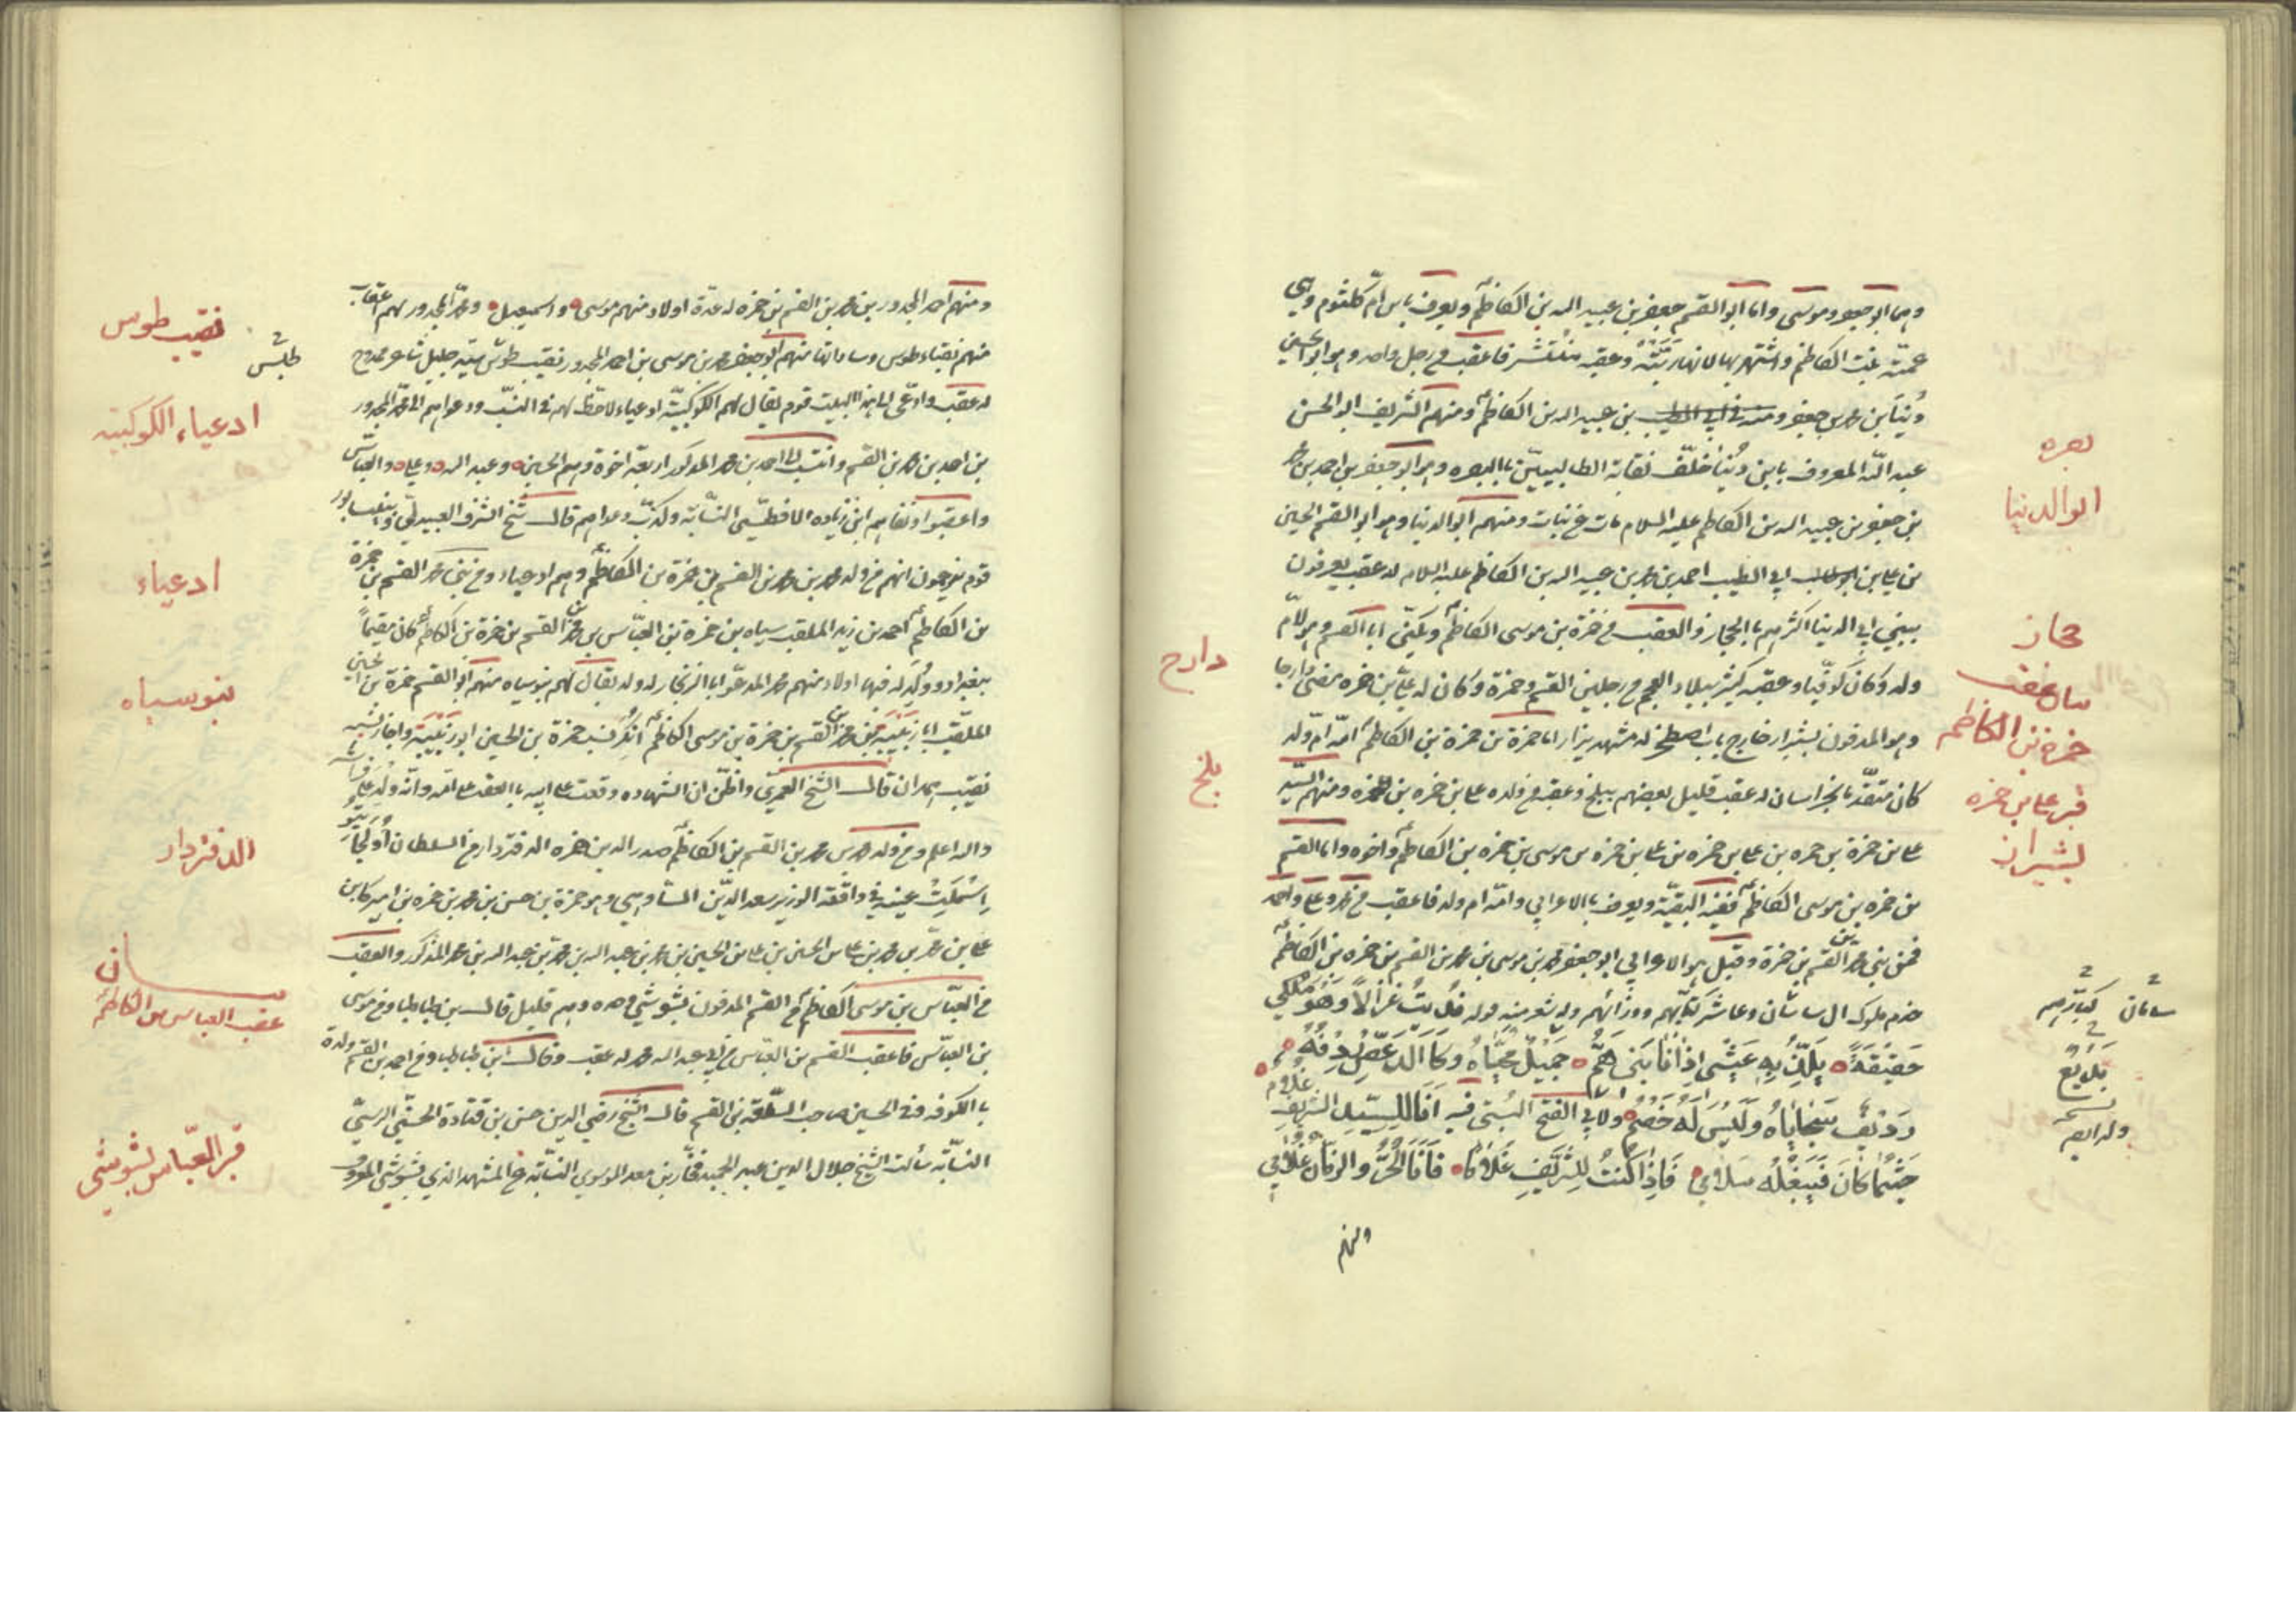 وهما ابو جعفر وموسى واما ابو القسم جعفر بن عبيد الله بن الكاظم ويعرف بابن ام كلثوم وهي
عمته بنت الكاظم واشتهر بها لانها ربته وعقبه منتشر فاعقب من رجل واحد وهو ابو الحسين
دنيا بن محمد بن جعفر ومنه ابي الطيب بن عبيد الله بن الكاظم ومنهم الشريف ابو الحسن
عبد الله المعروف بابن دنيا خلف نقابة الطالبيين بالبصره وهو ابو جعفر بن احمد بن محمد
بن جعفر بن عبيد الله بن الكاظم عليه السلام مات عن بنات ومنهم ابو الدنيا وهو ابو القسم الحسين
بن علي بن ابي الطيب احمد بن محمد بن عبيد الله بن الكاظم عليه السلام له عقب يعرفون
ببني ابي الدنيا اكثرهم بالحجاز والعقب من حمزة بن موسى الكاظم ويكنى ابا القسم وهو لام
ولد وكان كوفيا وعقبه كثير ببلاد العجم من رجلين القسم وحمزة وكان له علي بن حمزه مضى دارجا
وهو المدفون بشيراز خارج باب اصطخر له مشهد يزار اما حمزة بن حمزة بن الكاظم امه ام ولد
كان متقدما بخراسان له عقب قليل بعضهم ببلخ وعقبه من ولده علي بن حمزه بن حمزه ومنهم السيد
علي بن حمزة بن حمزه بن علي بن حمزه بن علي بن حمزه بن موسى بن حمزه بن الكاظم واخوه واما القسم
بن حمزه بن موسى الكاظم ففيه البقية ويعرف بالاعرابي وامه ام ولد فاعقب من محمد وعلي واحمد
فمن بني محمد بن القسم بن حمزة وقيل هو الاعرابي ابو جعفر محمد بن موسى بن محمد بن القسم بن حمزه بن الكاظم
خدم ملوك ال سامان وعاشر كتابهم ووزرائهم وله شعر منه قوله
حقيقة يلذ به عيشي اذا نابني هم جميل محياه وكالدعص ردفه
رديف سجاياه وليس له خصم ولابي الفتح البستي فيه انا للسيد الشريف غلام
حيثما كان فيبلغه سلامي فاذا كنت للشريف غلاما فانا الحر والزمان غلامي
ومنهم
بصره
ابو الدنيا
حجاز
عقب
حمزة بن الكاظم
قبر علي بن حمزه
بشيراز
دارج
بلخ
سامان
ومنهم احمد المجدور بن محمد بن القسم بن حمزه له عدة اولاد منهم موسى واسمعيل ومحمد المجدور لهم اعقاب
منهم نقباء طوس وساداتها منهم ابو جعفر محمد بن موسى بن احمد المجدور نقيب طوس سيد جليل شاعر ممدوح
له عقب وادعى الى هذا البيت قوم يقال لهم الكوكبية ادعياء لا حظ لهم في النسب ودعواهم الى محمد المجدور
بن احمد بن محمد بن القسم وانتسب الى احمد بن محمد المذكور اربعة اخوة وهم الحسين وعبد الله وعلي والعباس
واعقبوا ونفاهم ابن زياده الافطسي النسابه وكذب دعواهم قال شيخ الشرف العبيدلي
قوم يزعمون انهم من ولد محمد بن محمد بن القسم بن حمزة بن الكاظم وهم ادعياء ومن بني محمد بن القسم بن حمزة
بن الكاظم احمد بن زيد الملقب سياه بن حمزة بن العباس بن محمد بن القسم بن حمزة بن الكاظم كان مقيما
ببغداد وولد له فيها اولاد منهم محمد المدعو ابا الزنجار له ولد يقال لهم بنو سياه منهم ابو القسم حمزة بن الحسين
نقيب همدان قال الشيخ العمري واظن ان الشهاده وقعت على ابيه بالعقد على امه وانه ولد على فراشه
والله اعلم ومن ولد محمد بن القسم بن الكاظم صدر الدين حمزه الدفتردار من السلطان
عينيه في واقعة الوزير سعد الدين الساوهي وهو حمزة بن حسن بن محمد بن حمزه بن اميركا بن
علي بن محمد بن محمد بن علي بن الحسين بن علي بن الحسين بن محمد بن عبد الله بن محمد بن عبد الله بن محمد المذكور والعقب
من العباس بن موسى الكاظم من القسم المدفون بشوشي وحده وهم قليل قال بن طباطبا ومن موسى
بن العباس فاعقب القسم بن العباس من ابي عبد الله محمد له عقب وقال ابن طباطبا ومن احمد بن القسم ولده
بالكوفه ومن الحسين صاحب السلعة بن القسم قال الشيخ رضي الدين حسن بن قتادة الحسني الرسي
النسابه سألت الشيخ جلال الدين عبد الحميد فخار بن معد الموسوي النسابه عن المشهد الذي بشوشى المعروف
نقيب طوس
ادعياء الكوكبيه
ادعياء
بنو سياه
الدفتردار
عقب العباس بن الكاظم
قبر العباس بشوشى